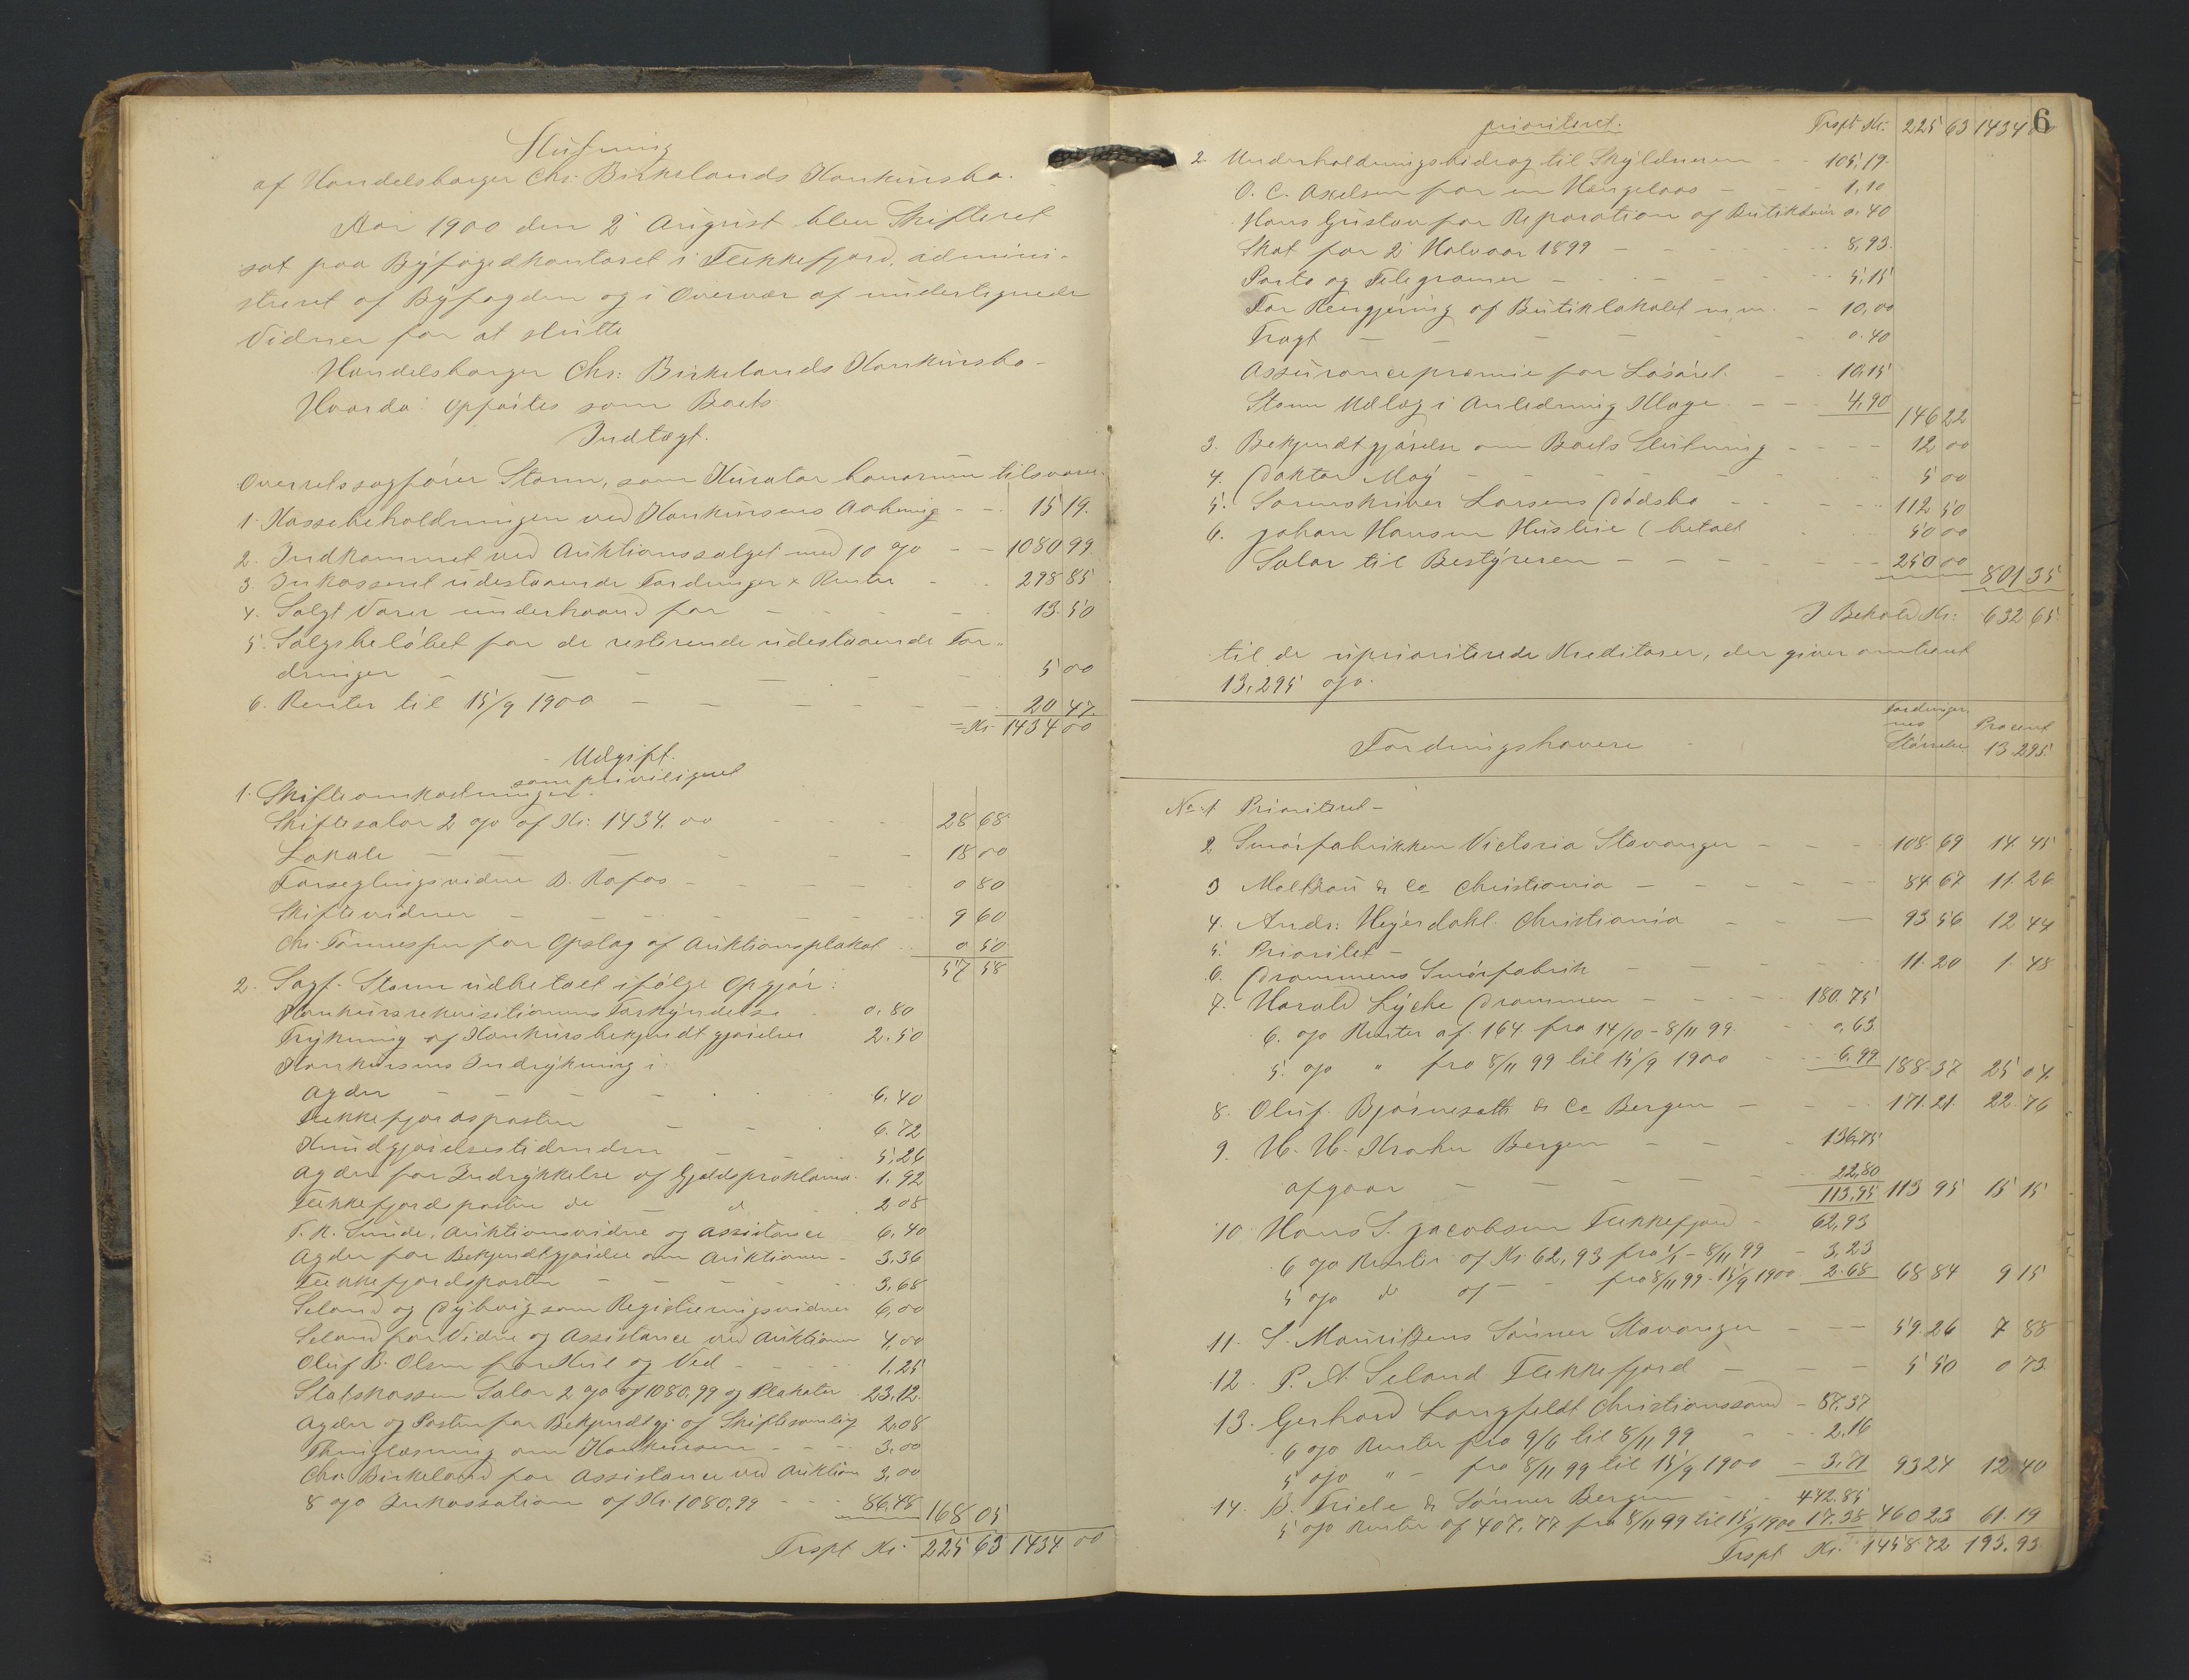 Slutning
af Handelsborger Chr. Birkelands Konkursbo.
Aar 1900 den 2 August blev Skifteret
sat paa Byfogedkontoret i Flekkefjord, admini-
streret af Byfogden og i Overvær af undertegnede
Vidner for at slutte
Handelsborger Chr. Birkelands Konkursbo
Hvorda: opførtes som Boets
Indtægt.
Overretssagfører Stamm, som Kurator bonorum tilsvarer.
1. Kassebeholdningen ved Konkursens Aabning - - 15 19.
2. Indkommet ved Auktionssalget med 10 % - - 1080 99.
3. Inkasseret udestaaende Fordringer & Renter - - 298 85
4. Solgt Varer underhaand for - - - 13 50
5. Salgsbeløbet for de resterende udestaaende For-
dringer - - - - 5 00
6. Renter til 15/9 1900 - - - - 20 47.
= Kr. 1434 00
Udgift.
som priviligeret
1. Skifteomkostninger.
Skiftesalar 2 % af Kr: 1434.00 28 68
Lokale - - - 18 00
Forseglingsvidne B. Rafos - - - 0 80
Skiftevidner - - - 9 60
Chr. Tønnessen for Opslag af Auktionsplakat 0 50
57 58
2. Sagf. Stamm udbetalt ifølge Opgjør:
Konkursrekvisitionens Forkyndelse 0.80
Trykning af Konkursbekjendtgjørelse 2.50
Konkursens Indrykning i:
Agder - - - 6.40
Flekkefjordsposten - - 6.72
Kundgjørelsestidenden - - 5.26
Agder for Indrykkelse af Gjældsproklama. 1.92
Flekkefjordsposten do - do 2.08
T. R. Sunde, Auktionsvidne og Assistance 6.40
Agder for Bekjendtgjørelse om Auktionen - 3.36
Flekkefjordsposten - - - 3.68
Seland og Dybvig som Registreringsvidner 6,00
Seland for Vidne og Assistance ved Auktionen 4,00
Oluf B. Olsen for Kul og Ved - - 1.25
Statskassen Salar 2 % af 1080,99 og Plakater 23.12.
Agder og Posten for Bekjendtgj. af Skiftesamling 2.08
Thinglæsning om Konkursen - - - 3.00
Chr. Birkeland for Assistance ved Auktion 3,00
8 % Inkassation af Kr. 1080.99 - - 86.48 168 05
Trspt Kr. 225 63 1434 00
6
prioriteret. Trspt Kr. 225 63 1434 00
2. Underholdningsbidrag til Skyldneren - - 105,19.
O. C. Axelsen for en Hængelaas - - - 1,10
Hans Gustav for Reparation af Butikdør 0.40
Skat for 2 Halvaar 1899 - - - 8,93.
Porto og Telegramer - - - 5.15
For Rengjøring af Butiklokalet m.m. - 10,00
Fragt - - - 0.40
Assurancepræmie for Løsøret. - 10,15
Stamm Udlæg i Anledning Klage - - 4,90 146 22
3. Bekjendtgjørelse om Boets Slutning - - - 12 00
4. Doktor Moy - - - 5 00
5. Sorenskriver Larsens Dødsbo - - - 112 50
6. Johan Hansen Husleie (betalt 50 00
Salar til Bestyreren - - - 250 00 801 35
I Behold Kr: 632 65.
til de uprioriterede Kreditorer, der giver omtrent
13,295 %.
Fordringshavere Fordringer- nes Størrelse Procent 13 295.
No. 1 Prioriteret -
2 Smørfabrikken Victoria Stavanger - - - 108 69 14 45
3 Malthau & Co Christiania - - - 84 67 11 26
4. Andr: Heyerdahl. Christiania - - 93 56 12 44
5. Prioritet -
6. Drammens Smørfabrik - - - 11 20 1 48
7. Harald Lyche Drammen - - - 180.75
6. % Renter af 164. fra 14/10 - 8/11 99. 0,63
5. % " fra 8/11 99 til 15/9 1900 - - 6.99 188 37 25 04.
8. Oluf Bjørnesett & Co Bergen - - - 171 21. 22 76
9. H. H. Krohn Bergen - - - 136,75
afgaar - - - 22,80
113,95 113 95 15 15
10. Hans S. Jacobsen Flekkefjord - 62,93
6 % Renter af Kr. 62,93 fra 1/1 - 8/11 99 - 3,23
5 % do af - - fra 8/11 99 - 15/9 1900 2.68 68 84 9 15
11. S. Mauritzens Sønner Stavanger - - - 59 26 7 88
12. P. A. Seland Flekkefjord - - - 5 50 0 73
13. Gerhard Langfeldt Christianssand - 87,37
6 % Renter fra 9/6 til 8/11 99 - - 2.16
5 % " - fra 8/11 99 til 15/9 1900 - 3,71 93 24 12 40
14. B. Friele & Sønner Bergen - - 442.85
5 % Renter af 407.77 fra 8/11 99 til 15/9 1900 17.38 460 23 61.19
Trspt Kr. 1458 72 193.93.